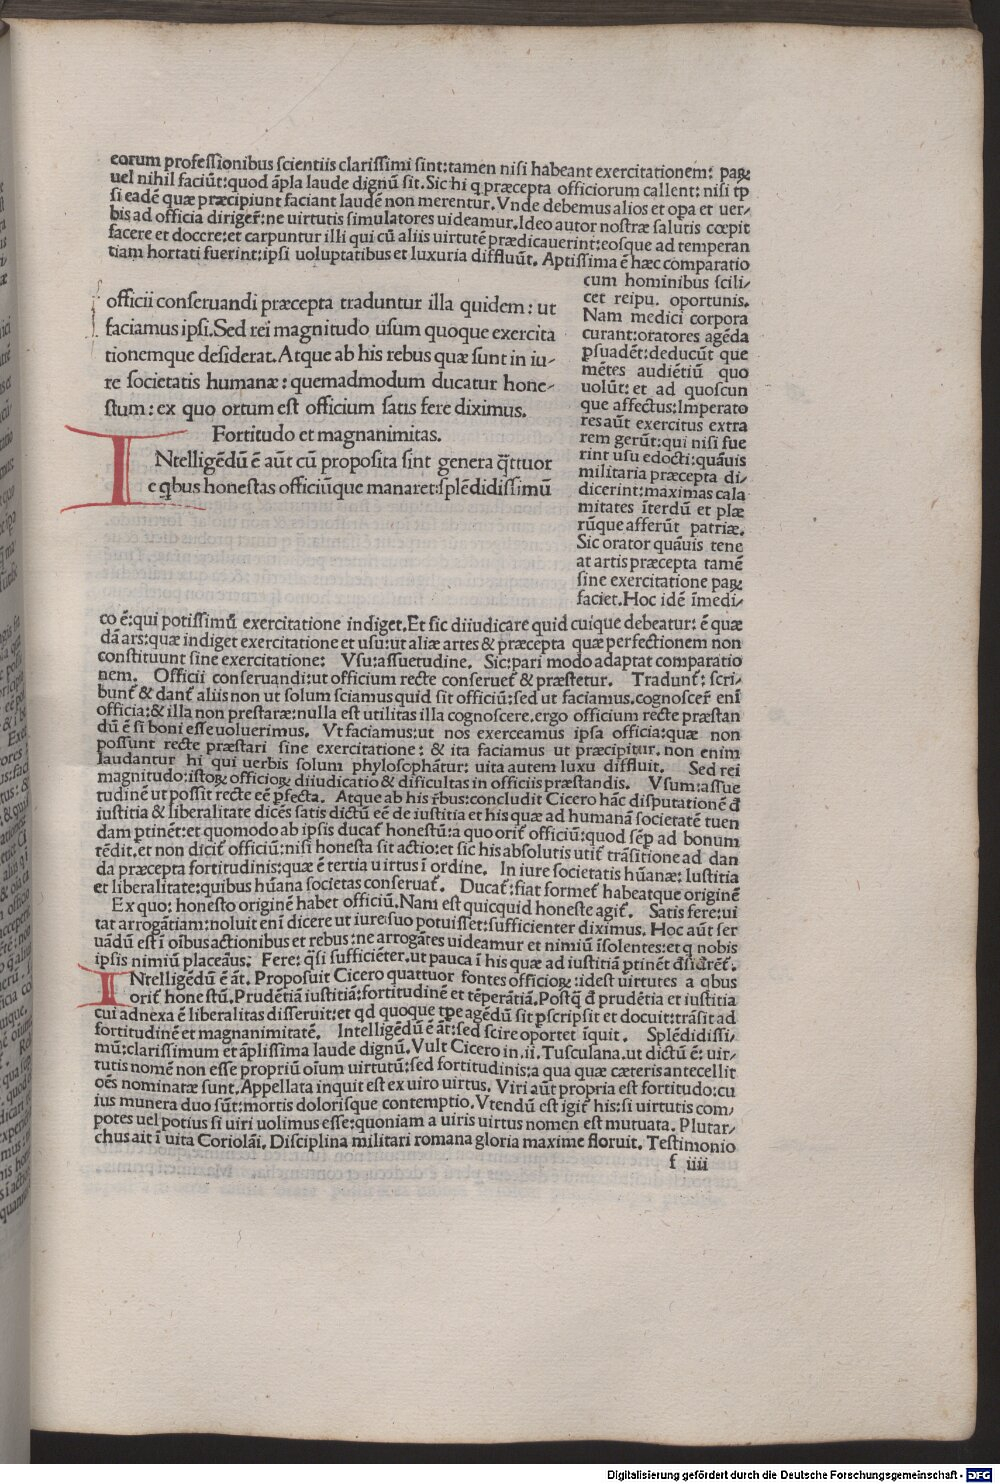 eorum professionibus scientiis clarissimi sint:tamen nisi habeant exercitationem: paꝝ
uel nihil faciūt:quod āpla laude dignū sit. Sic hi q præcepta officiorum callent: nisi
si eadē quæ præcipiunt faciant laudē non merentur. Vnde debemus alios et opa et uer-
bis ad officia diriger̄: ne uirtutis simulatores uideamur. Ideo autor nostræ salutis cœpit
facere et docere: et carpuntur illi qui cū aliis uirtutē prædicauerint: eosque ad temperan
tiam hortati fuerint: ipsi uoluptatibus et luxuria diffluūt. Aptissima ē hæc comparatio
cum hominibus scili-
cet reipu. oportunis.
Nam medici corpora
curant: oratores agēda
psuadēt: deducūt que
mētes audiētiū quo
uolūt: et ad quoscun
que affectus: Imperato
res aūt exercitus extra
rem gerūt: qui nisi fue
rint usu edocti: quāuis
militaria præcepta di-
dicerint: maximas cala
mitates īterdū et plæ
rūque afferūt patriæ.
Sic orator quāuis tene
at artis præcepta tamē
sine exercitatione paꝝ
faciet. Hoc idē īmedi-
officii conseruandi præcepta traduntur illa quidem: ut
faciamus ipsi. Sed rei magnitudo usum quoque exercita
tionemque desiderat. Atque ab his rebus quæ sunt in iu-
re societatis humanæ: quemadmodum ducatur hone-
stum: ex quo ortum est officium satis fere diximus.
Fortitudo et magnanimitas.
INtelligēdū ē aūt cū proposita sint genera q̄ttuor
e qbus honestas officiūque manaret: splēdidissimū
co ē: qui potissimū exercitatione indiget. Et sic diiudicare quid cuique debeatur: ē quæ
dā ars: quæ indiget exercitatione et usu: ut aliæ artes & præcepta quæ perfectionem non
constituunt sine exercitatione: Vsu: assuetudine. Sic: pari modo adaptat comparatio
nem. Officii conseruandi: ut officium recte conseruet̄ & præstetur. Tradunt̄: scri-
bunt̄ & dant̄ aliis non ut solum sciamus quid sit officiū: sed ut faciamus. cognoscer̄ enī
officia: & illa non prestaræ: nulla est utilitas illa cognoscere. ergo officium recte præstan
dū ē si boni esse uoluerimus. Vt faciamus: ut nos exerceamus ipsa officia: quæ non
possunt recte præstari sine exercitatione: & ita faciamus ut præcipitur. non enim
laudantur hi qui uerbis solum phylosophātur: uita autem luxu diffluit. Sed rei
magnitudo: istoꝝ officioꝝ diiudicatio & dificultas in officiis præstandis. Vsum: assue
tudinē ut possit recte eē pfecta. Atque ab his r̄bus: concludit Cicero hāc disputationē đ
iustitia & liberalitate dicēs satis dictū eē de iustitia et his quæ ad humanā societatē tuen
dam ptinēt: et quomodo ab ipsis ducat̄ honestū: a quo orit̄ officiū: quod sēp ad bonum
tēdit. et non dicit̄ officiū: nisi honesta sit actio: et sic his absolutis utit̄ trāsitione ad dan
da præcepta fortitudinis: quæ ē tertia uirtus ī ordine. In iure societatis hūanæ: Iustitia
et liberalitate: quibus hūana societas conseruat̄. Ducat̄: fiat formet̄ habeatque originē
Ex quo: honesto originē habet officiū. Nam est quicquid honeste agit̄. Satis fere: ui
tat arrogātiam: noluit enī dicere ut iure suo potuisset: sufficienter diximus. Hoc aūt ser
uādū est ī oībus actionibus et rebus: ne arrogātes uideamur et nimiū īsolentes: et q nobis
ipsis nimiū placeāus. Fere: q̄si sufficiēter. ut pauca ī his quæ ad iustitiā ptinēt đsidrēt̄.
INtelligēdū ē āt. Proposuit Cicero quattuor fontes officioꝝ: idest uirtutes a qbus
orit̄ honestū. Prudētiā iustitiā: fortitudinē et tēperātiā. Postq̄ đ prudētia et iustitia
cui adnexa ē liberalitas disseruit: et qd quoque tpe agēdū sit pscripsit et docuit: trāsit ad
fortitudinē et magnanimitatē. Intelligēdū ē āt: sed scire oportet īquit. Splēdidissi-
mū: clarissimum et āplissima laude dignū. Vult Cicero in .ii. Tusculana. ut dictū ē: uir-
tutis nomē non esse propriū oīum uirtutū: sed fortitudinis: a qua quæ cæteris antecellit
oēs nominatæ sunt. Appellata inquit est ex uiro uirtus. Viri aūt propria est fortitudo: cu
ius munera duo sūt: mortis dolorisque contemptio. Vtendū est igit̄ his: si uirtutis com-
potes uel potius si uiri uolimus esse: quoniam a uiris uirtus nomen est mutuata. Plutar-
chus ait ī uita Coriolāi. Disciplina militari romana gloria maxime floruit. Testimonio
f iiii
Digitalisierung gefördert durch die Deutsche Forschungsgemeinschaft - DFG